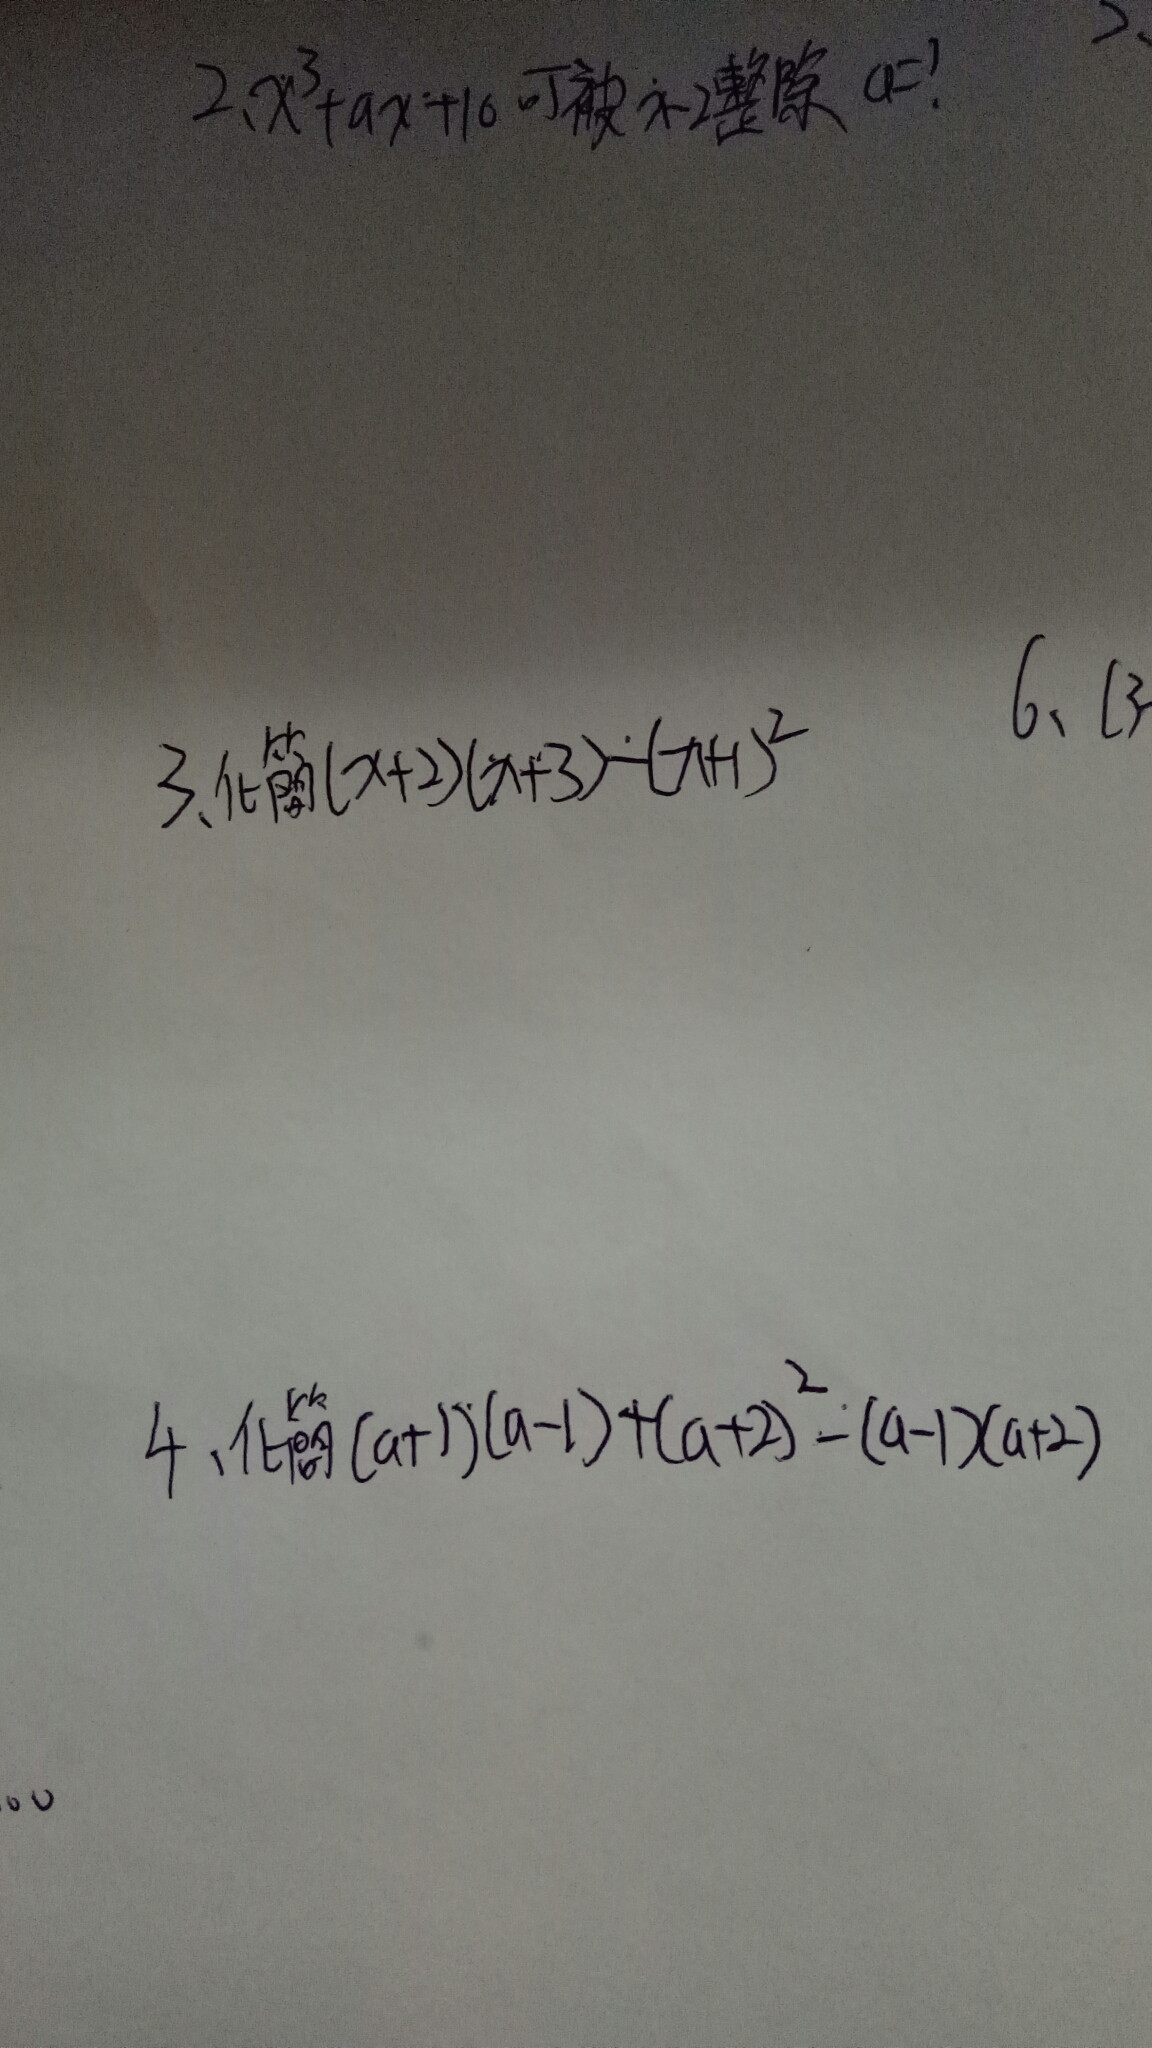 2、x³+ax+10可被x-2整除 a=?
3、化簡(x+2)(x+3)-(x+1)²
6、(3
4、化簡(a+1)(a-1)+(a+2)²-(a-1)(a+2)